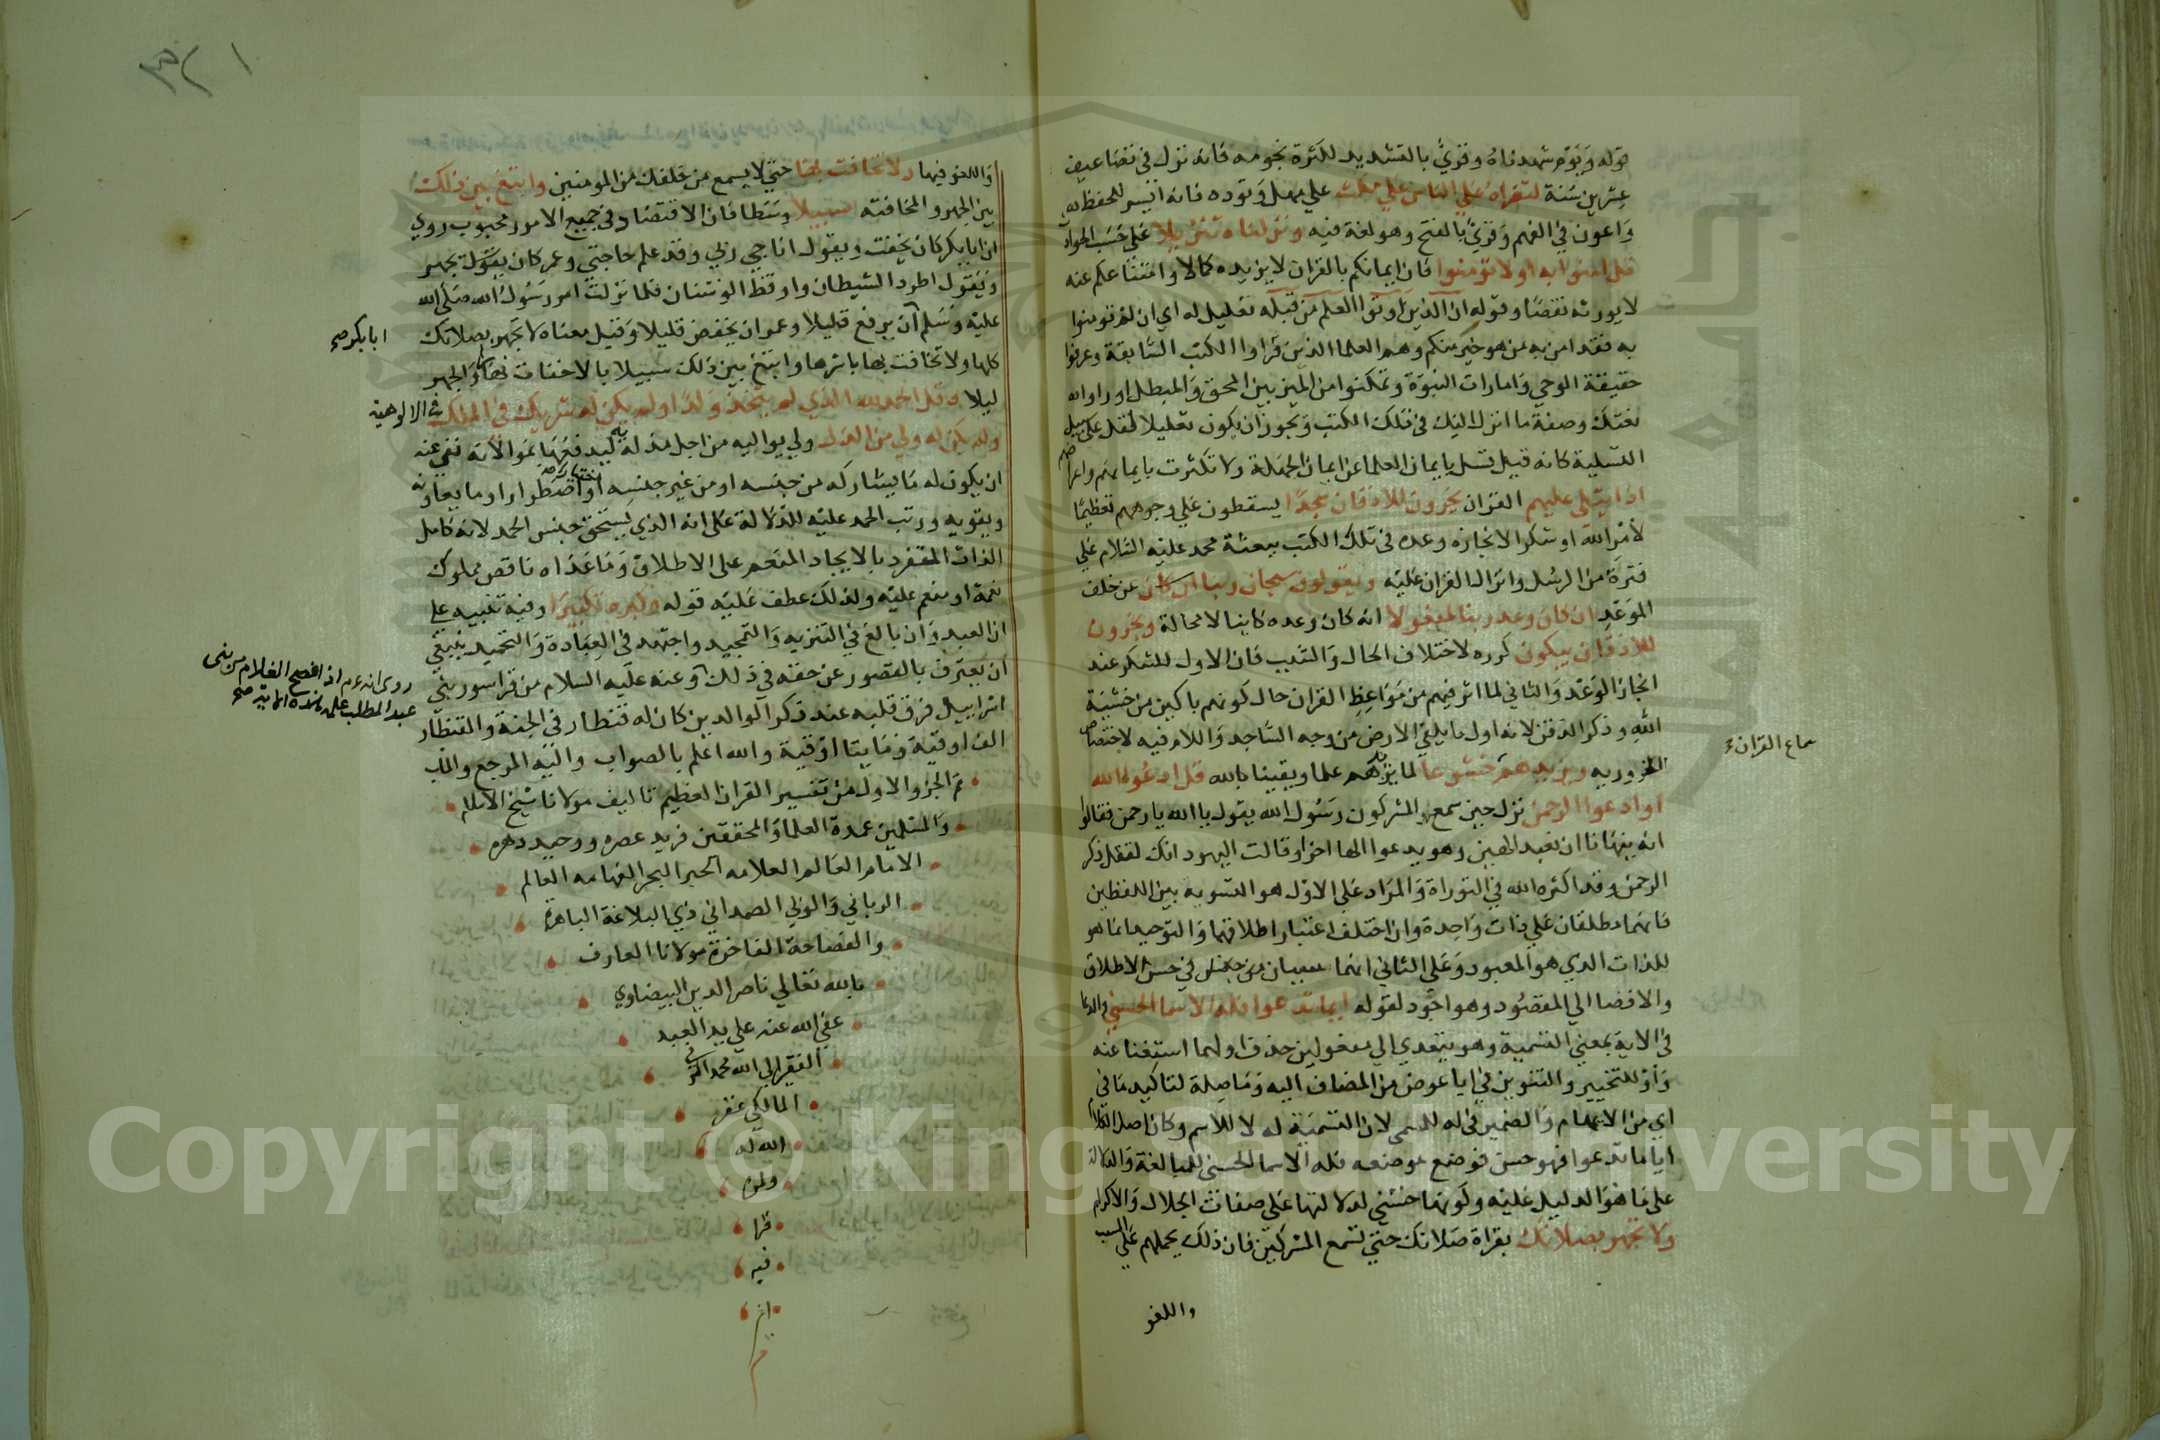 قوله ويوم شهدناه وقرئ بالتشديد لكثرة نجومه فانه نزل في تضاعيف
عشرين سنة لتقراه علي الناس علي مكث علي مهل وتوده فانه ايسر للحفظ
واعون في الفهم وقرئ بالفتح وهو لغة فيه ونزلناه تنزيلا علي حسب الحوادث
قل امنوا به او لا تؤمنوا فان ايمانكم بالقران لا يزيده كمالا وامتناعكم عنه
لا يورثه نقصا وقوله ان الذين اوتوا العلم من قبله تعليل له اي ان لم تومنوا
به فقد امن به من هو خير منكم وهم العلما الذين قراوا الكتب السابقة وعرفوا
حقيقة الوحي وامارات النبوة وتمكنوا من الميز بين المحق والمبطل او راوا
نعتك وصفة ما انزل اليك في تلك الكتب ويجوز ان يكون تعليلا لقل علي سبيل
التسلية كانه قيل تسل بايمان العلما عن ايمان الجهلة ولا تكثرت بايمانهم واعراضهم
اذا يتلي عليهم القران يخرون للاذقان سجدا يسقطون علي وجوههم تعظيما
لامر الله او شكرا لانجازه وعده في تلك الكتب ببعثة محمد عليه السلام علي
فترة من الرسل وانزال القران عليه ويقولون سبحان ربنا ان كان عن خلف
الموعد ان كان وعد ربنا لمفعولا انه كان وعده كاينا لا محالة ويخرون
للاذقان يبكون كرره لاختلاف الحال والسبب فان الاول للشكر عند
انجاز الوعد والثاني لما اثر فيهم من مواعظ القران حال كونهم باكين من خشية
الله وذكر الذقن لانه اول ما يلقي الارض من وجه الساجد واللام فيه لاختصاص
الخرور به ويزيدهم خشوعا لما يزيدهم علما ويقينا بالله قل ادعوا الله
سماع القران
او ادعوا الرحمن نزل حين سمع المشركون رسول الله يقول يا الله يا رحمن فقالوا
انه ينهانا ان نعبد الهين وهو يدعوا الها اخر او قالت اليهود انك لتقل ذكر
الرحمن وقد اكثره الله في التوراة والمراد علي الاول هو التسويه بين اللفظين
بانهما مطلقان علي ذات واحدة وان اختلف اعتبار اطلاقهما والتوحيد انما هو
للذات الذي هو المعبود وعلي الثاني انهما سيان في حسن الاطلاق
والافضا الي المقصود وهو اجود لقوله ايا ما تدعوا فله الاسما الحسني والدعا
في الاية بمعني التسمية وهو يتعدي الي مفعولين حذف اولهما استغنا عنه
واو للتخيير والتنوين في ايا عوض من المضاف اليه وما صلة لتاكيد ما في
اي من الابهام والضمير في له للمسمي لان التسمية له لا للاسم وكان اصل الكلام
ايا ما تدعوا فهو حسن فوضع موضعه فله الاسما الحسني للمبالغة والدلالة
علي ما هو الدليل عليه وكونها حسني لدلالتها علي صفات الجلال والاكرام
ولا تجهر بصلاتك بقراة صلاتك حتي تسمع المشركين فان ذلك يحملهم علي السب
واللغو
واللغو فيها ولا تخافت بها حتي لا يسمع من خلفك من المومنين وابتغ بين ذلك
بين الجهر والمخافته سبيلا وسطا فان الاقتصاد في جميع الامور محبوب روي
ان ابا بكر كان يخفت ويقول اناجي ربي وقد علم حاجتي وعمر كان يقول يجهر
ويقول اطرد الشيطان واوقظ الوسنان فلما نزلت امر رسول الله صلي الله
عليه وسلم ان يرفع قليلا وعمر ان يخفض قليلا وقيل معناه لا تجهر بصلاتك
ابا بكر صح
كلها ولا تخافت بها باسرها وابتغ بين ذلك سبيلا بالاخفات نهارا والجهر
ليلا وقل الحمد لله الذي لم يتخذ ولدا ولم يكن له شريك في الملك في الالوهية
ولم يكن له ولي من الذل ولي يواليه من اجل مذلة به ليدفعها بموالاته نفي عنه
ان يكون له ما يشاركه من جنسه او من غير جنسه اختيارا او اضطرارا وما يعاونه
ويقويه ورتب الحمد عليه للدلالة علي انه الذي يستحق جنس الحمد لانه كامل
الذات المتفرد بالايجاد المنعم علي الاطلاق وما عداه ناقص مملوك
نعمة او منعم عليه ولذلك عطف عليه قوله وكبره تكبيرا وفيه تنبيه علي
ان العبد وان بالغ في التنزيه والتمجيد واجتهد في العبادة والتحميد ينبغي
ان يعترف بالقصور عن حقه في ذلك وعنه عليه السلام من قرا سورة بني
روي انه عم اذا افصح الغلام من بني
عبد المطلب علمه هذه الاية صح
اسراييل فرق قلبه عند ذكر الوالدين كان له قنطار في الجنة والقنطار
الف اوقية ومايتا اوقية والله اعلم بالصواب واليه المرجع والماب
تم الجزو الاول من تفسير القران العظيم تاليف مولانا شيخ الاسلام
والمسلمين عمدة العلما والمحققين فريد عصره ووحيد دهره
الامام العالم العلامه الحبر البحر الفهامه العالم
الرباني والولي الصمداني ذي البلاغة الباهرة
والفصاحة الفاخرة مولانا العارف
بالله تعالي ناصر الدين البيضاوي
عفي الله عنه علي يد العبد
الفقير الي الله محمد
المالكي غفر
الله له
ولمن
قرا
فيه
Copyright © King Saud University